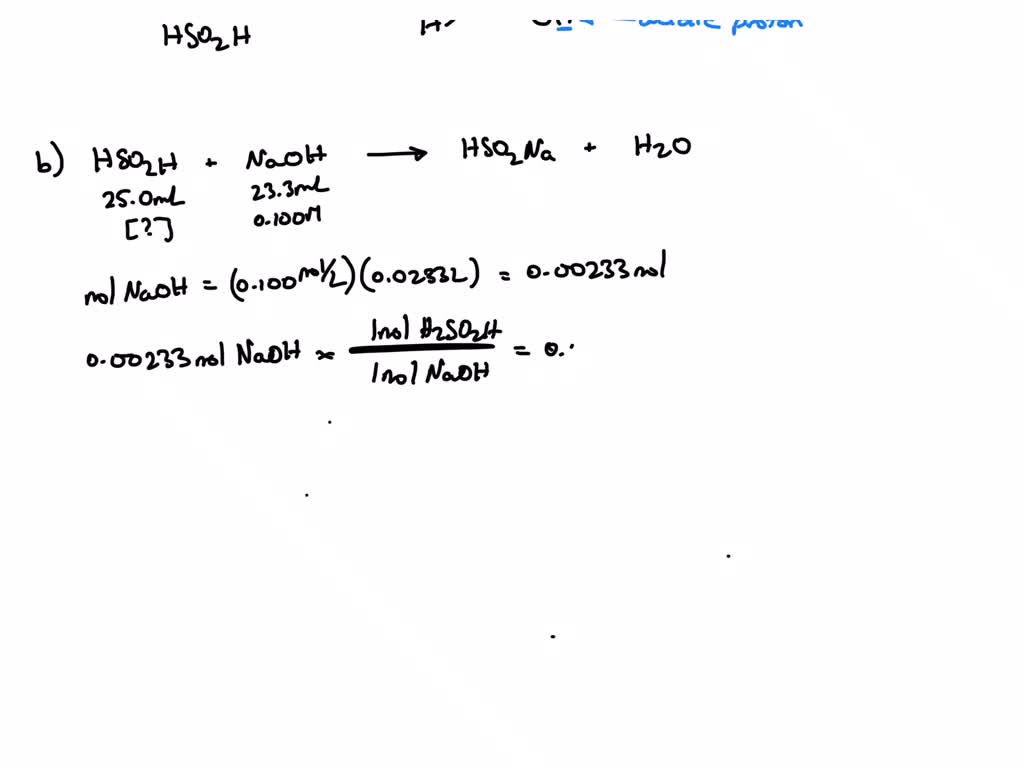 HSO₂H
proton
b) HSO₂H + NaOH → HSO₂Na + H₂O
25.0mL 23.3mL
[?] 0.100M
mol NaOH = (0.100 mol/L)(0.0233L) = 0.00233 mol
0.00233 mol NaOH × 1 mol H₂SO₂H / 1 mol NaOH = 0.